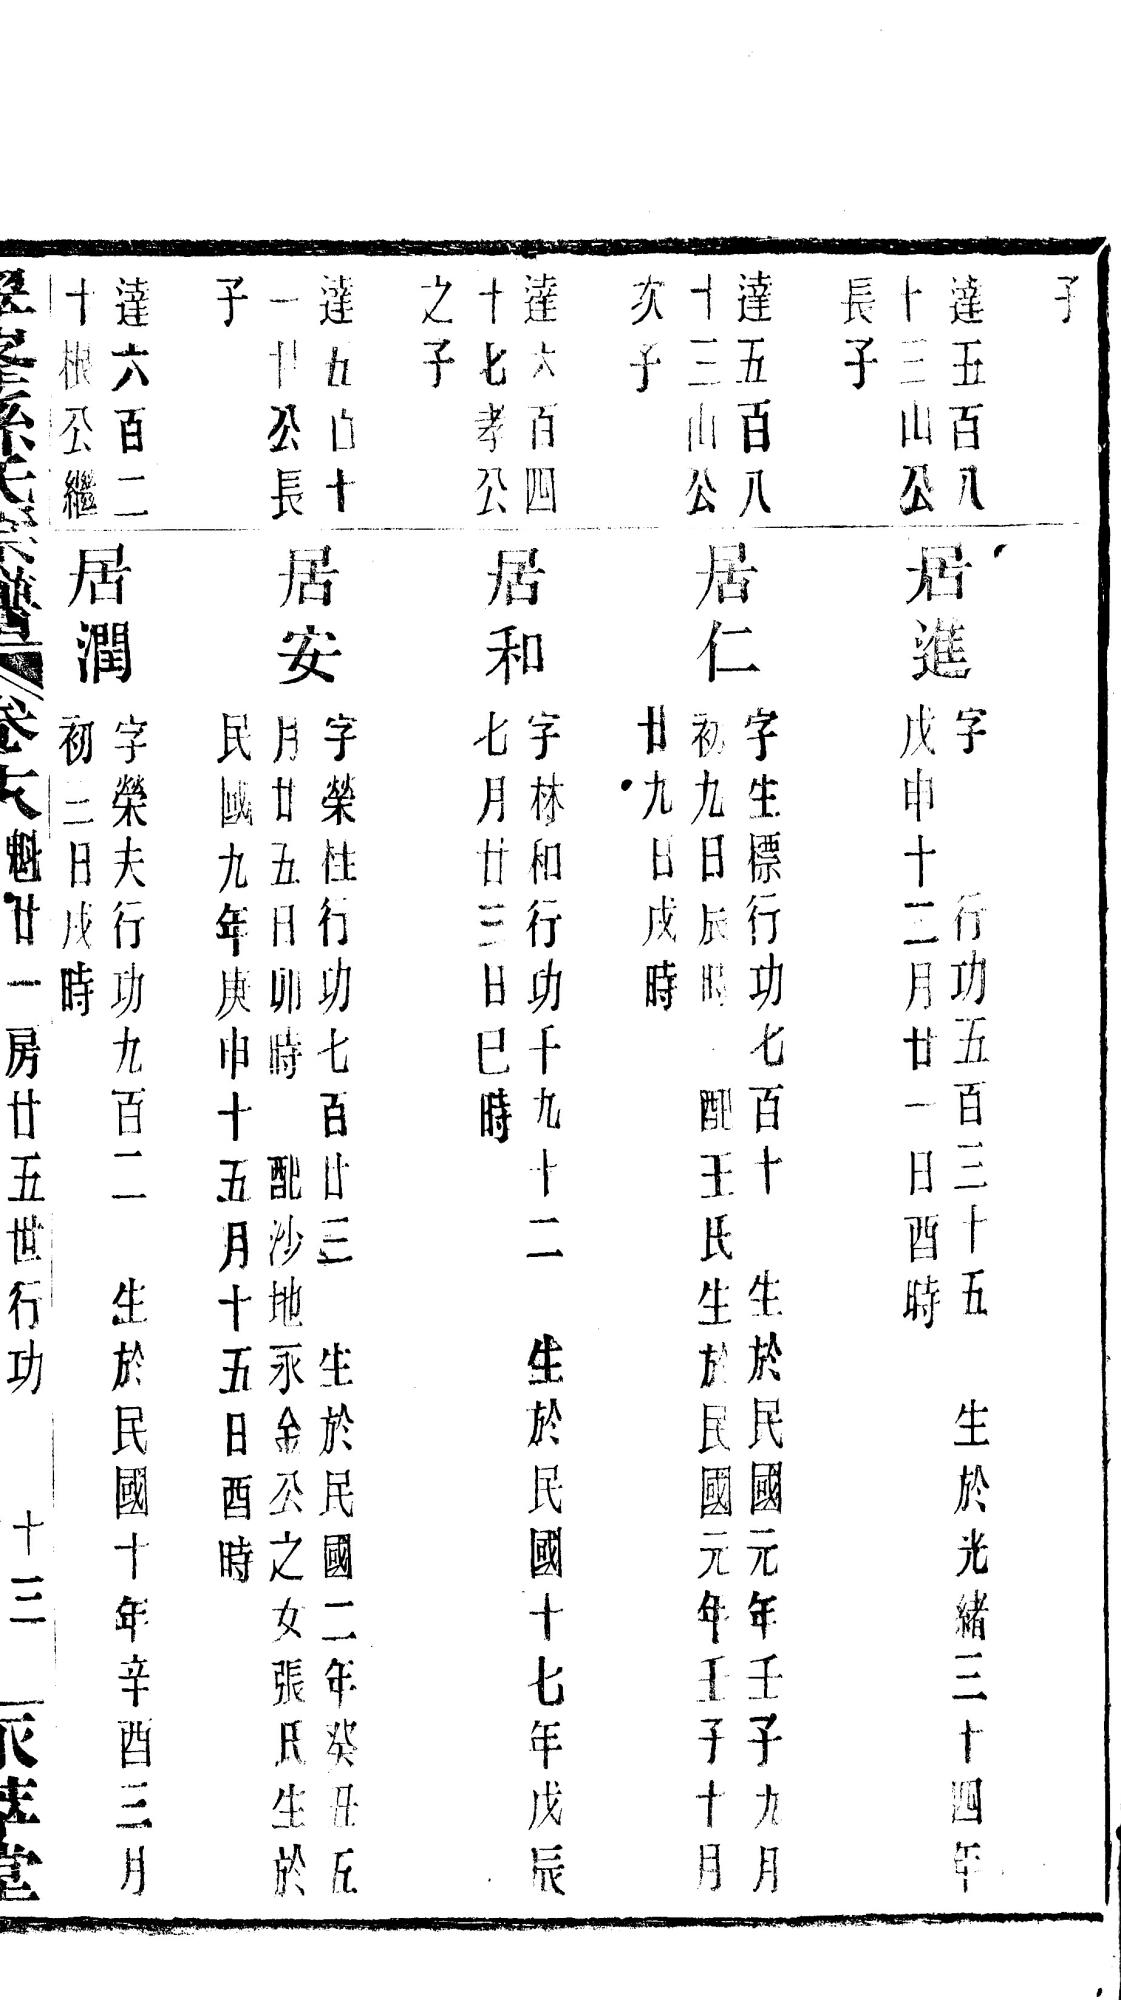 子
達五百八
十三山公
長子
居進
字　　行功五百三十五　生於光緒三十四年
戊申十二月廿一日酉時
達五百八
十三山公
次子
居仁
字生標行功七百十　生於民國元年壬子九月
初九日辰時　配王氏生於民國元年壬子十月
廿九日戌時
達六百四
十七孝公
之子
居和
字林和行功千九十二　生於民國十七年戊辰
七月廿三日巳時
達五百十
一　公長
子
居安
字榮性行功七百廿三　生於民國二年癸丑五
月廿五日卯時　配沙地永金公之女張氏生於
民國九年庚申十五月十五日酉時
達六百二
十根公繼
居潤
字榮夫行功九百二　生於民國十年辛酉三月
初三日戌時
孫氏宗譜　卷　魁廿一房廿五世行功　十三　堂